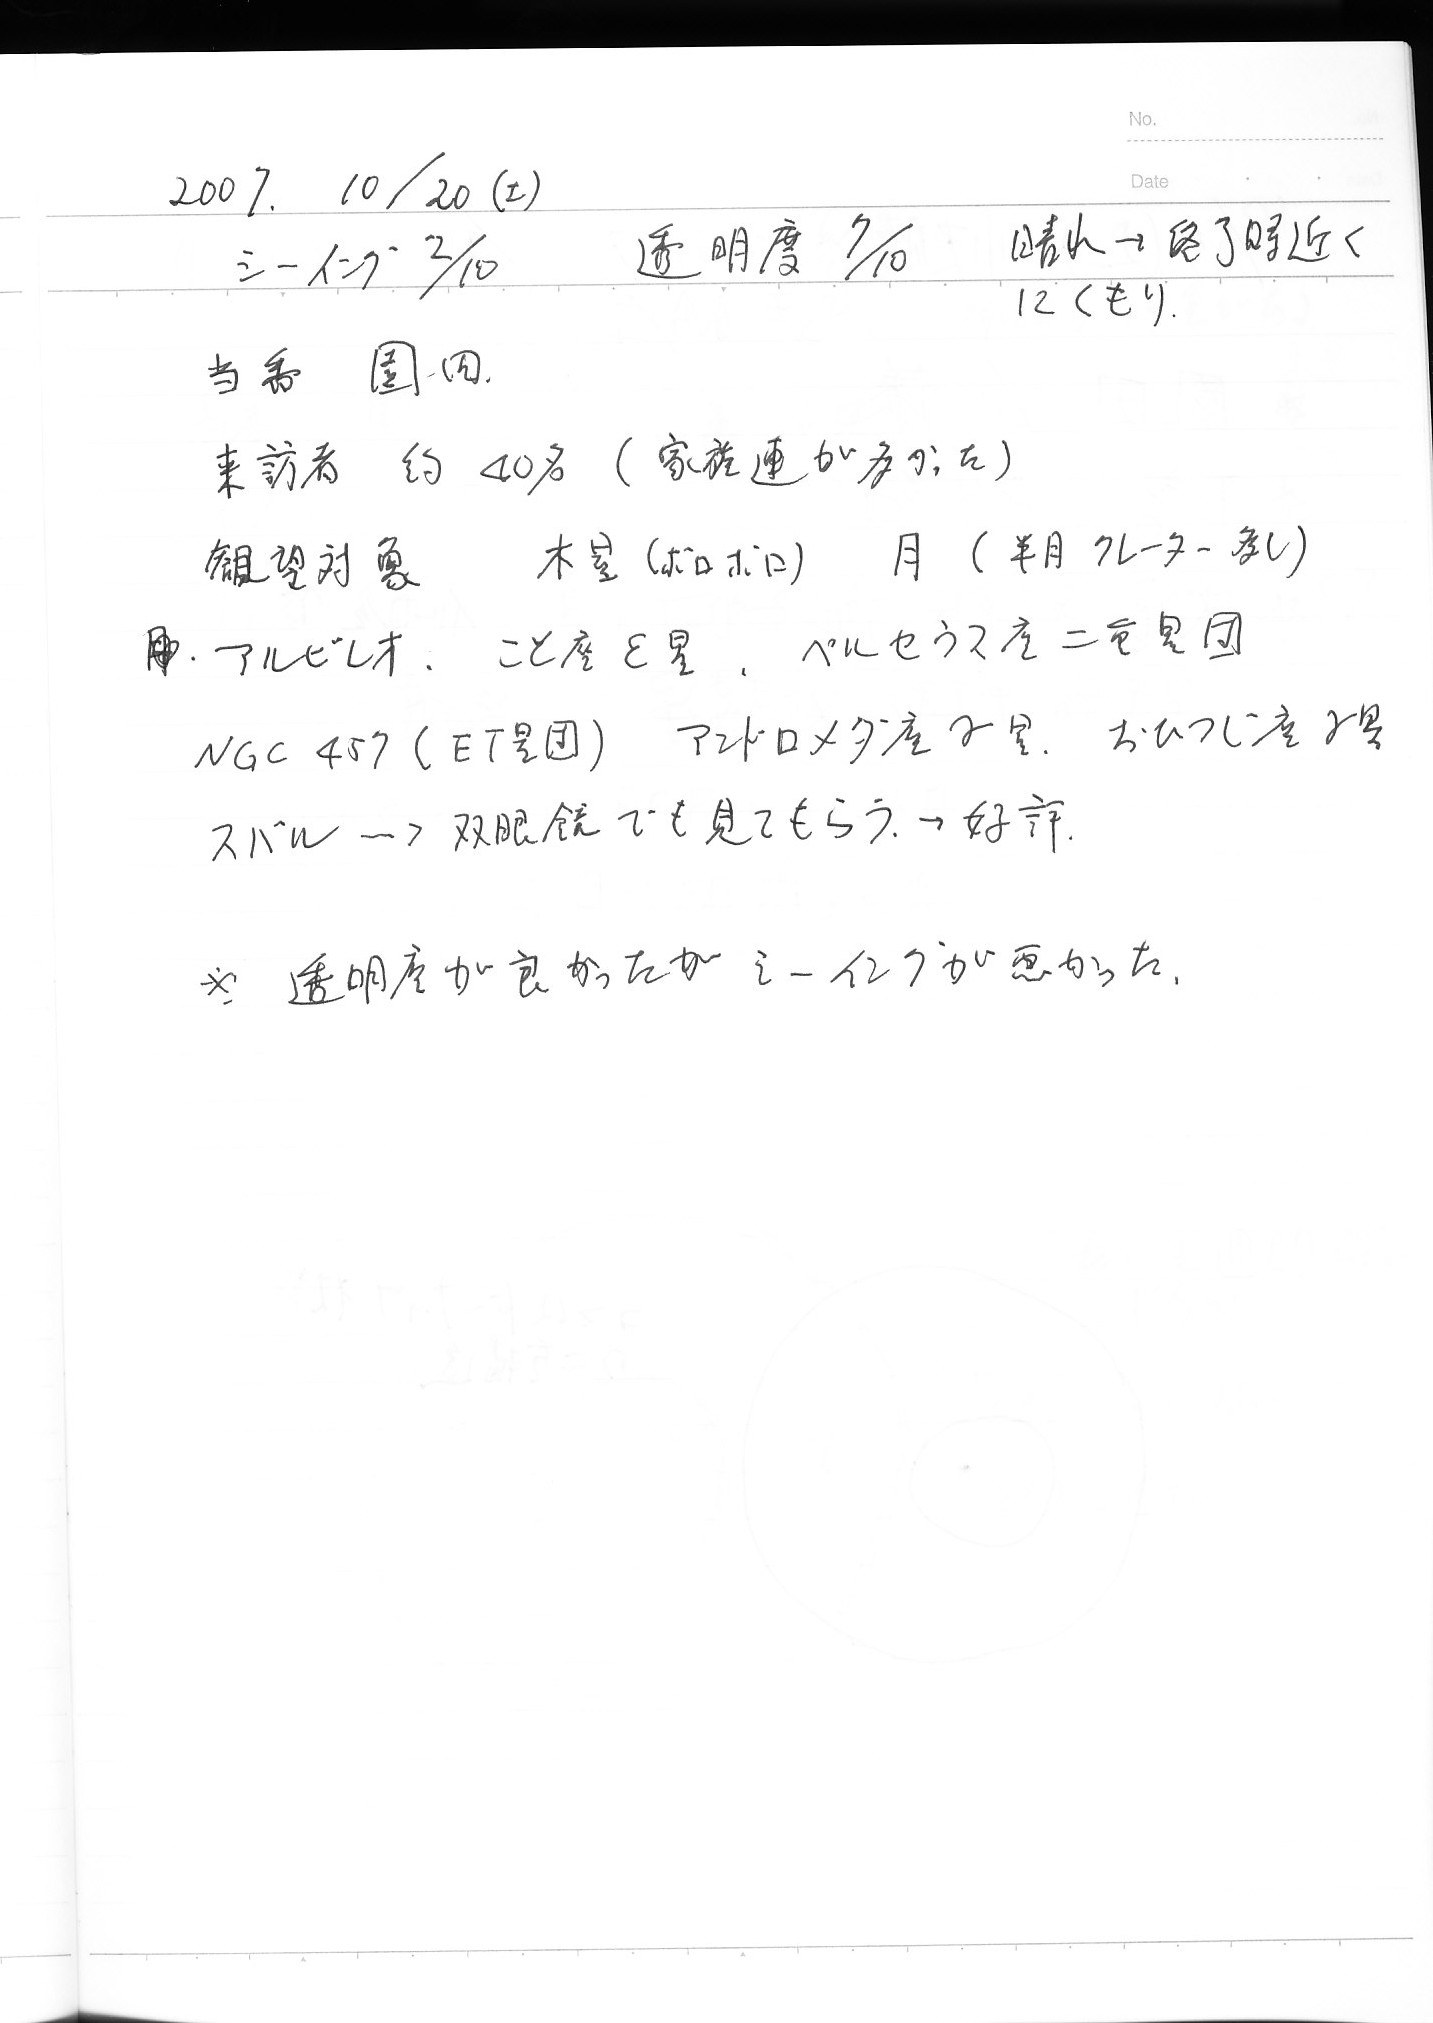 No.
Date
2007. 10/20 (土)
シーイング 2/10 透明度 7/10 晴れ→終了時近く
にくもり.
当番 園田.
来訪者 約40名 (家族連が多かった)
観望対象 木星(ボロボロ) 月 (半月クレーター多し)
アルビレオ. こと座ε星. ペルセウス座二重星団
NGC 457 (ET星団) アンドロメダ座γ星. おひつじ座γ星
スバル → 双眼鏡でも見てもらう.→好評.
※ 透明度が良かったがシーイングが悪かった.